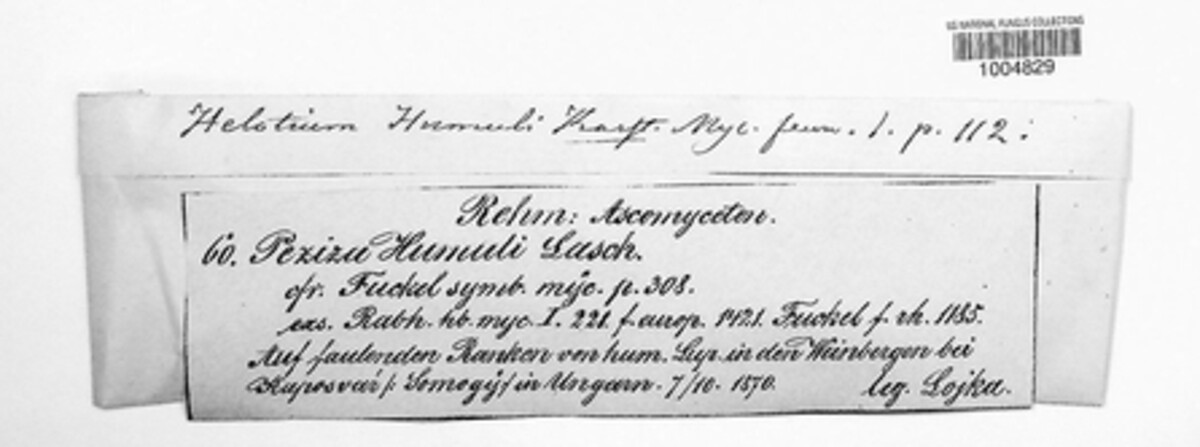 US NATIONAL FUNGUS COLLECTIONS
1004829
Helotium Humuli Karst. Myc. fenn. I. p. 112:
Rehm: Ascomyceten.
60. Peziza Humuli Lasch.
cfr. Fuckel symb. myc. p. 308.
exs. Rabh. hb. myc. I. 221. f. europ. 1121. Fuckel f. rh. 1185.
Auf faulenden Ranken von hum. Lup. in den Weinbergen bei
Kaposvár (: Somogy) in Ungarn. 7/10. 1870. leg. Lojka.